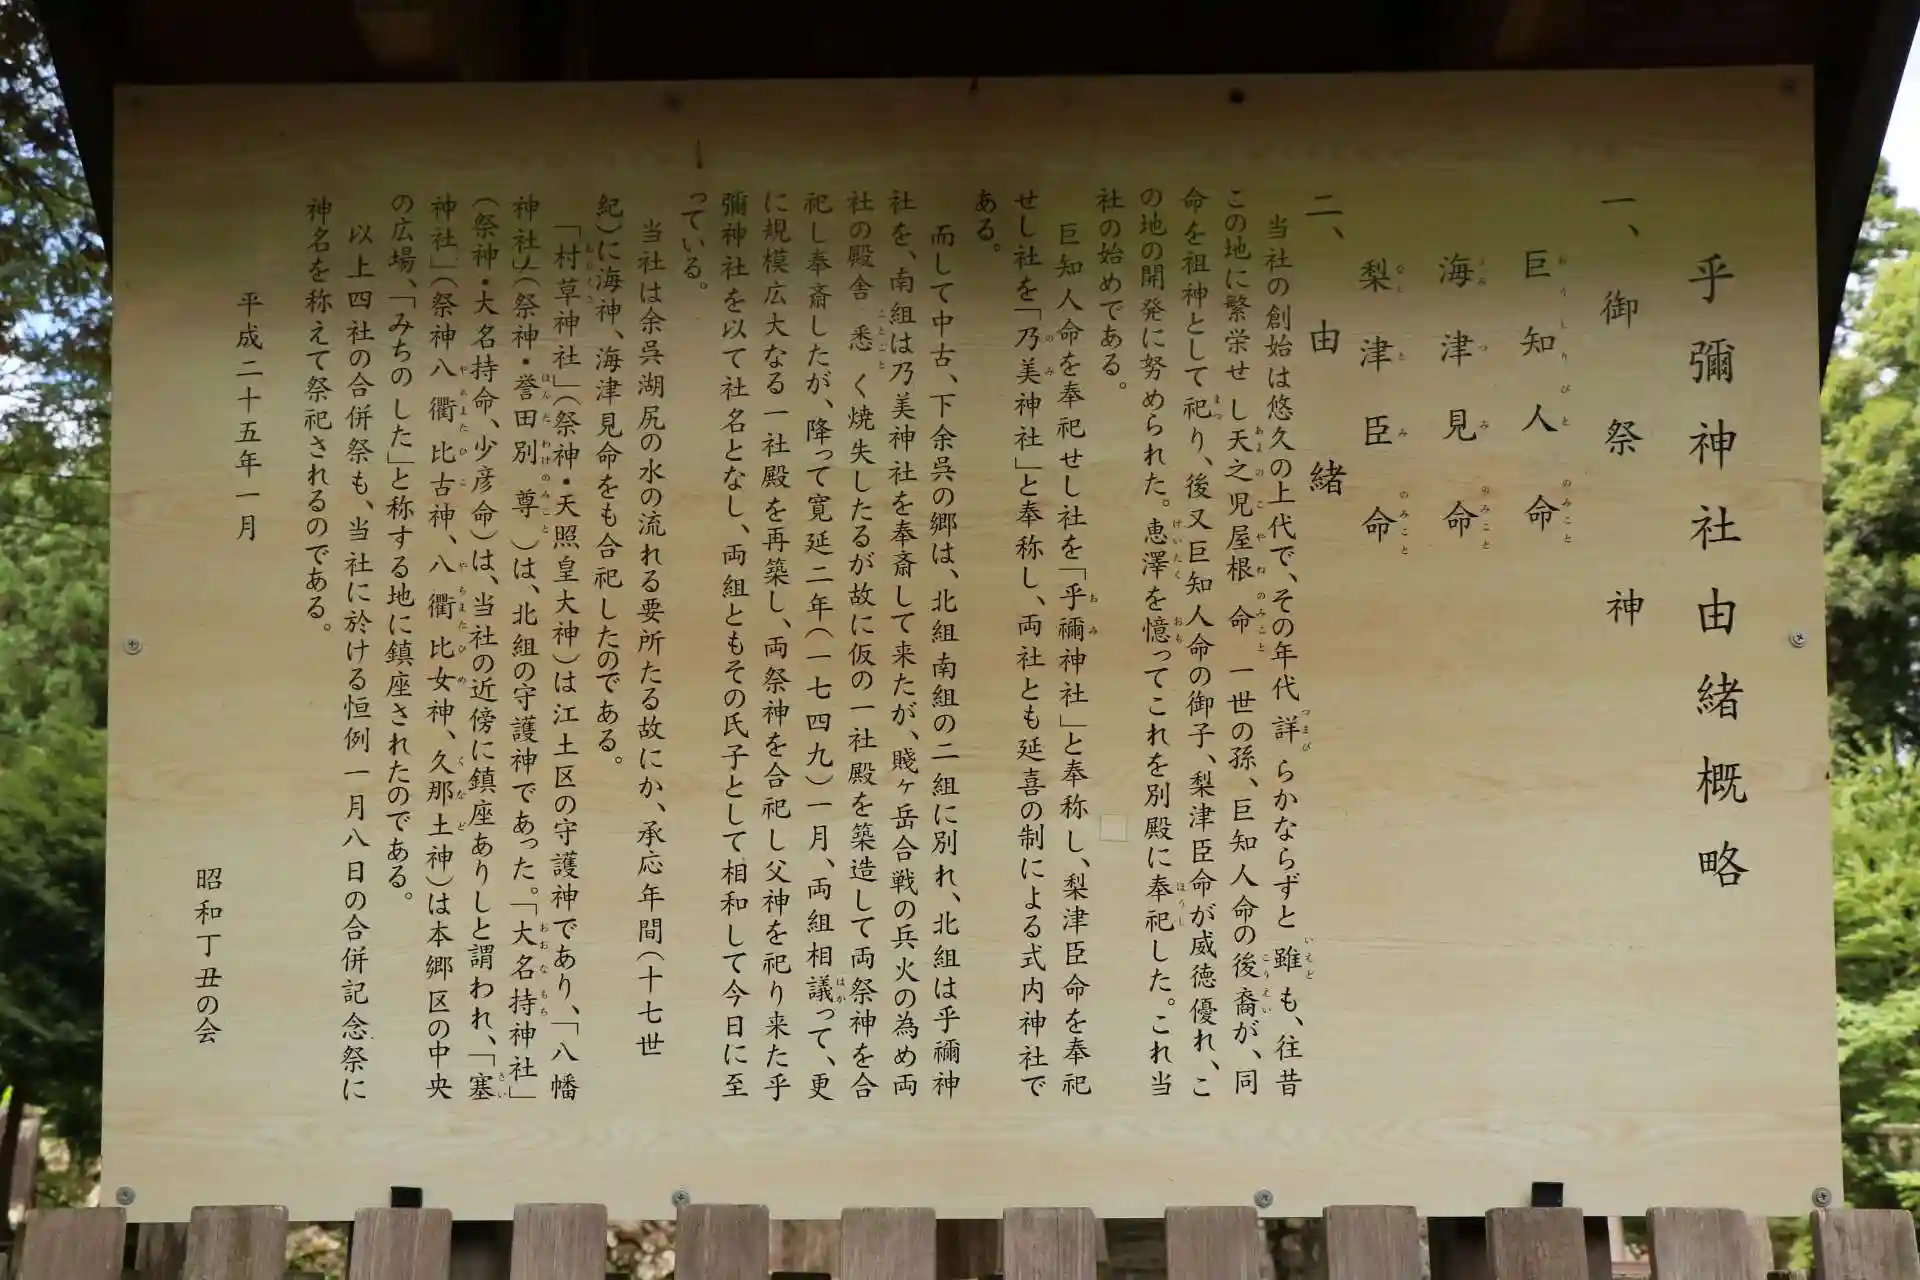 乎彌神社由緒概略
一、御祭神
巨知人命
海津見命
梨津臣命
二、由緒
当社の創始は悠久の上代で、その年代詳らかならずと雖も、往昔
この地に繁栄せし天之児屋根命一世の孫、巨知人命の後裔が、同
命を祖神として祀り、後又巨知人命の御子、梨津臣命が威徳優れ、こ
の地の開発に努められた。恵澤を憶ってこれを別殿に奉祀した。これ当
社の始めである。
巨知人命を奉祀せし社を「乎禰神社」と奉称し、梨津臣命を奉祀
せし社を「乃美神社」と奉称し、両社とも延喜の制による式内神社で
ある。
而して中古、下余呉の郷は、北組南組の二組に別れ、北組は乎禰神
社を、南組は乃美神社を奉斎して来たが、賤ヶ岳合戦の兵火の為め両
社の殿舎悉く焼失したるが故に仮の一社殿を築造して両祭神を合
祀し奉斎したが、降って寛延二年(一七四九)一月、両組相議って、更
に規模広大なる一社殿を再築し、両祭神を合祀し父神を祀り来た乎
彌神社を以て社名となし、両組ともその氏子として相和して今日に至
っている。
当社は余呉湖尻の水の流れる要所たる故にか、承応年間(十七世
紀)に海神、海津見命をも合祀したのである。
「村草神社」(祭神・天照皇大神)は江土区の守護神であり、「八幡
神社」(祭神・誉田別尊)は、北組の守護神であった。「大名持神社」
(祭神・大名持命、少彦命)は、当社の近傍に鎮座ありしと謂われ、「塞
神社」(祭神八衢比古神、八衢比女神、久那土神)は本郷区の中央
の広場、「みちのした」と称する地に鎮座されたのである。
以上四社の合併祭も、当社に於ける恒例一月八日の合併記念祭に
神名を称えて祭祀されるのである。
平成二十五年一月
昭和丁丑の会